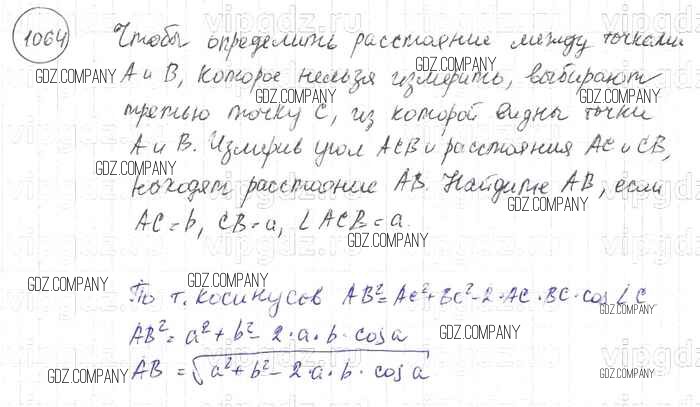 1064 Чтобы определить расстояние между точками
А и В, которое нельзя измерить, выбирают
третью точку С, из которой видны точки
А и В. Измерив угол АСВ и расстояния АС и СВ,
находят расстояние АВ. Найдите АВ, если
АС=b, CB=a, ∠ACB=a.
По т. косинусов AB²=AC²+BC²-2·AC·BC·cos∠C
AB²=a²+b²-2·a·b·cosa
AB=√a²+b²-2·a·b·cosa
GDZ.COMPANY
GDZ.COMPANY
GDZ.COMPANY
GDZ.COMPANY
GDZ.COMPANY
GDZ.COMPANY
GDZ.COMPANY
GDZ.COMPANY
GDZ.COMPANY
GDZ.COMPANY
GDZ.COMPANY
GDZ.COMPANY
GDZ.COMPANY
GDZ.COMPANY